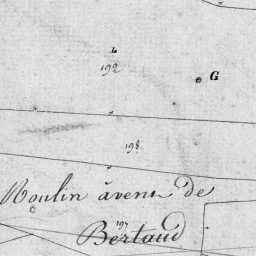 L
192
G
198
Moulin à vent de
197
Bertaud